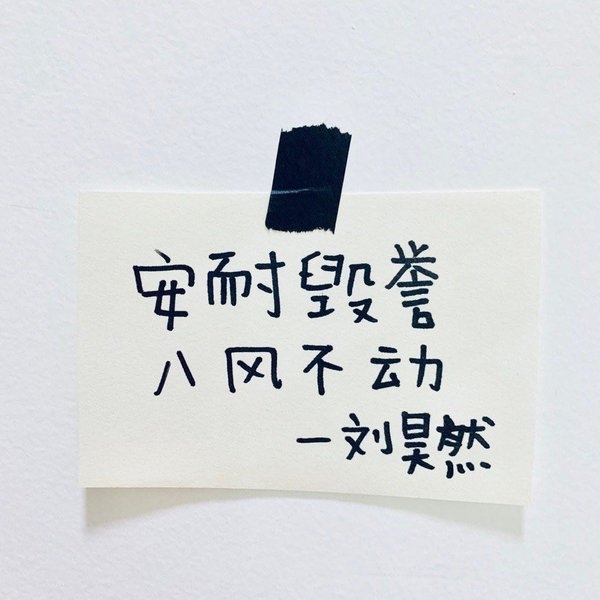 安耐毁誉
八风不动
一刘昊然